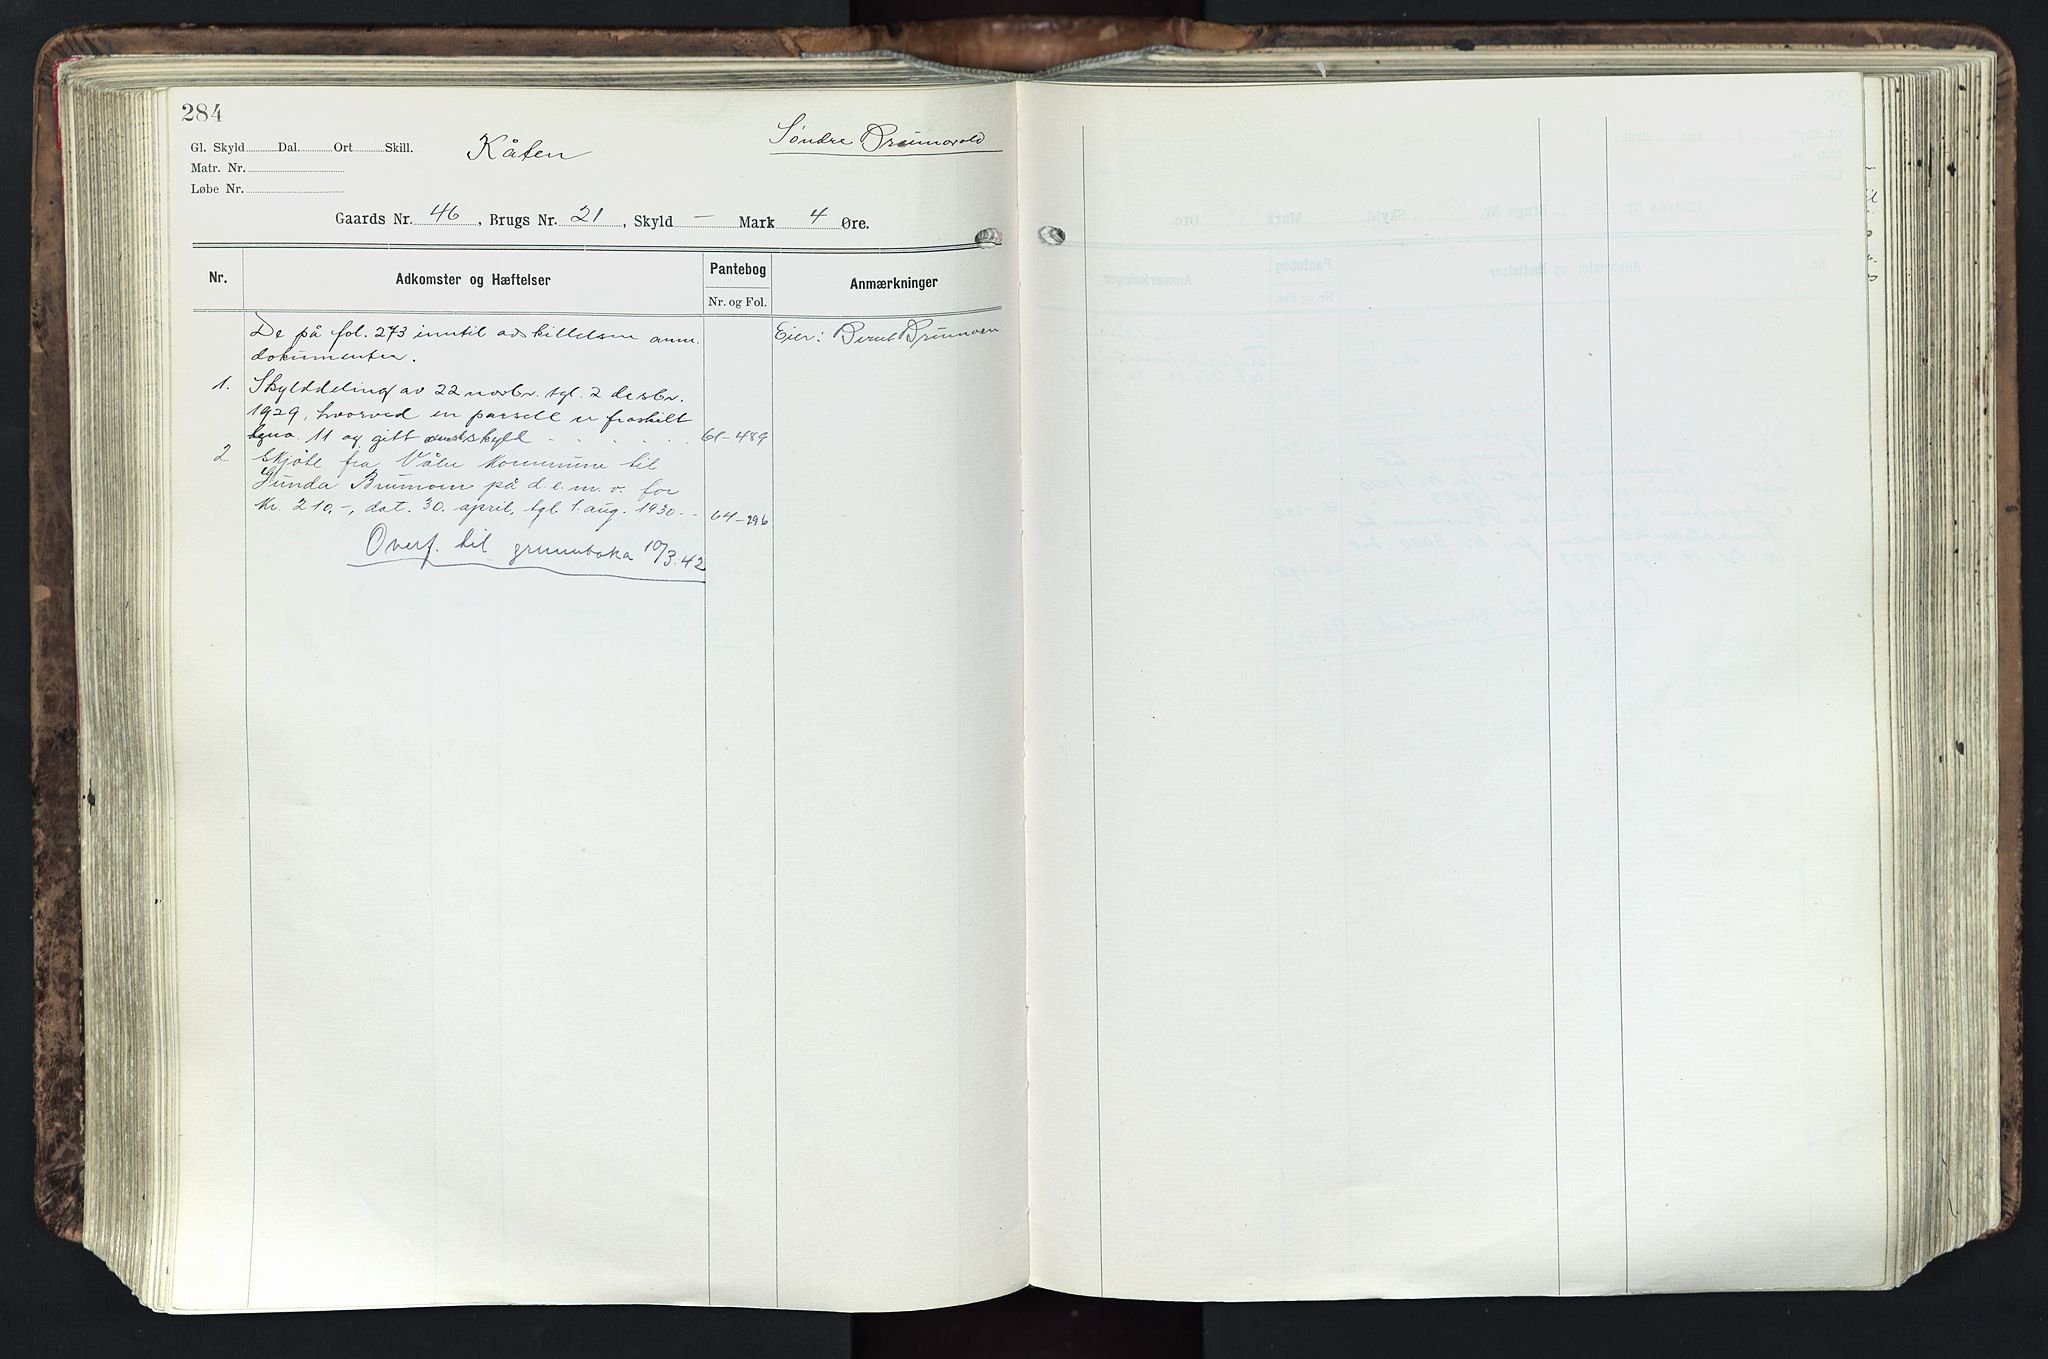 284
Gl. Skyld Dal. Ort Skill.
Kåten
Søndre Brumovold
Matr. Nr.
Løbe Nr.
Gaards Nr. 46, Brugs Nr. 21, Skyld — Mark 4 Øre.
Nr.
Adkomster og Hæftelser
Pantebog
Nr. og Fol.
Anmærkninger
De på fol. 273 inntil adskillelsen anm.
dokumenter.
Eier: Bernt Brumoen
1. Skylddeling av 22 novbr. tgl. 2 desbr.
1929, hvorved en parsell er fraskilt
bno. 11 og gitt skyld . . . . . 61-489
2. Skjöte fra Våler kommune til
Gunda Brumoen på d.e.m.v. for
kr. 210.-, dat. 30. april, tgl. 1. aug. 1930.- 64-296
Overf. til grunnboka 10/3.42